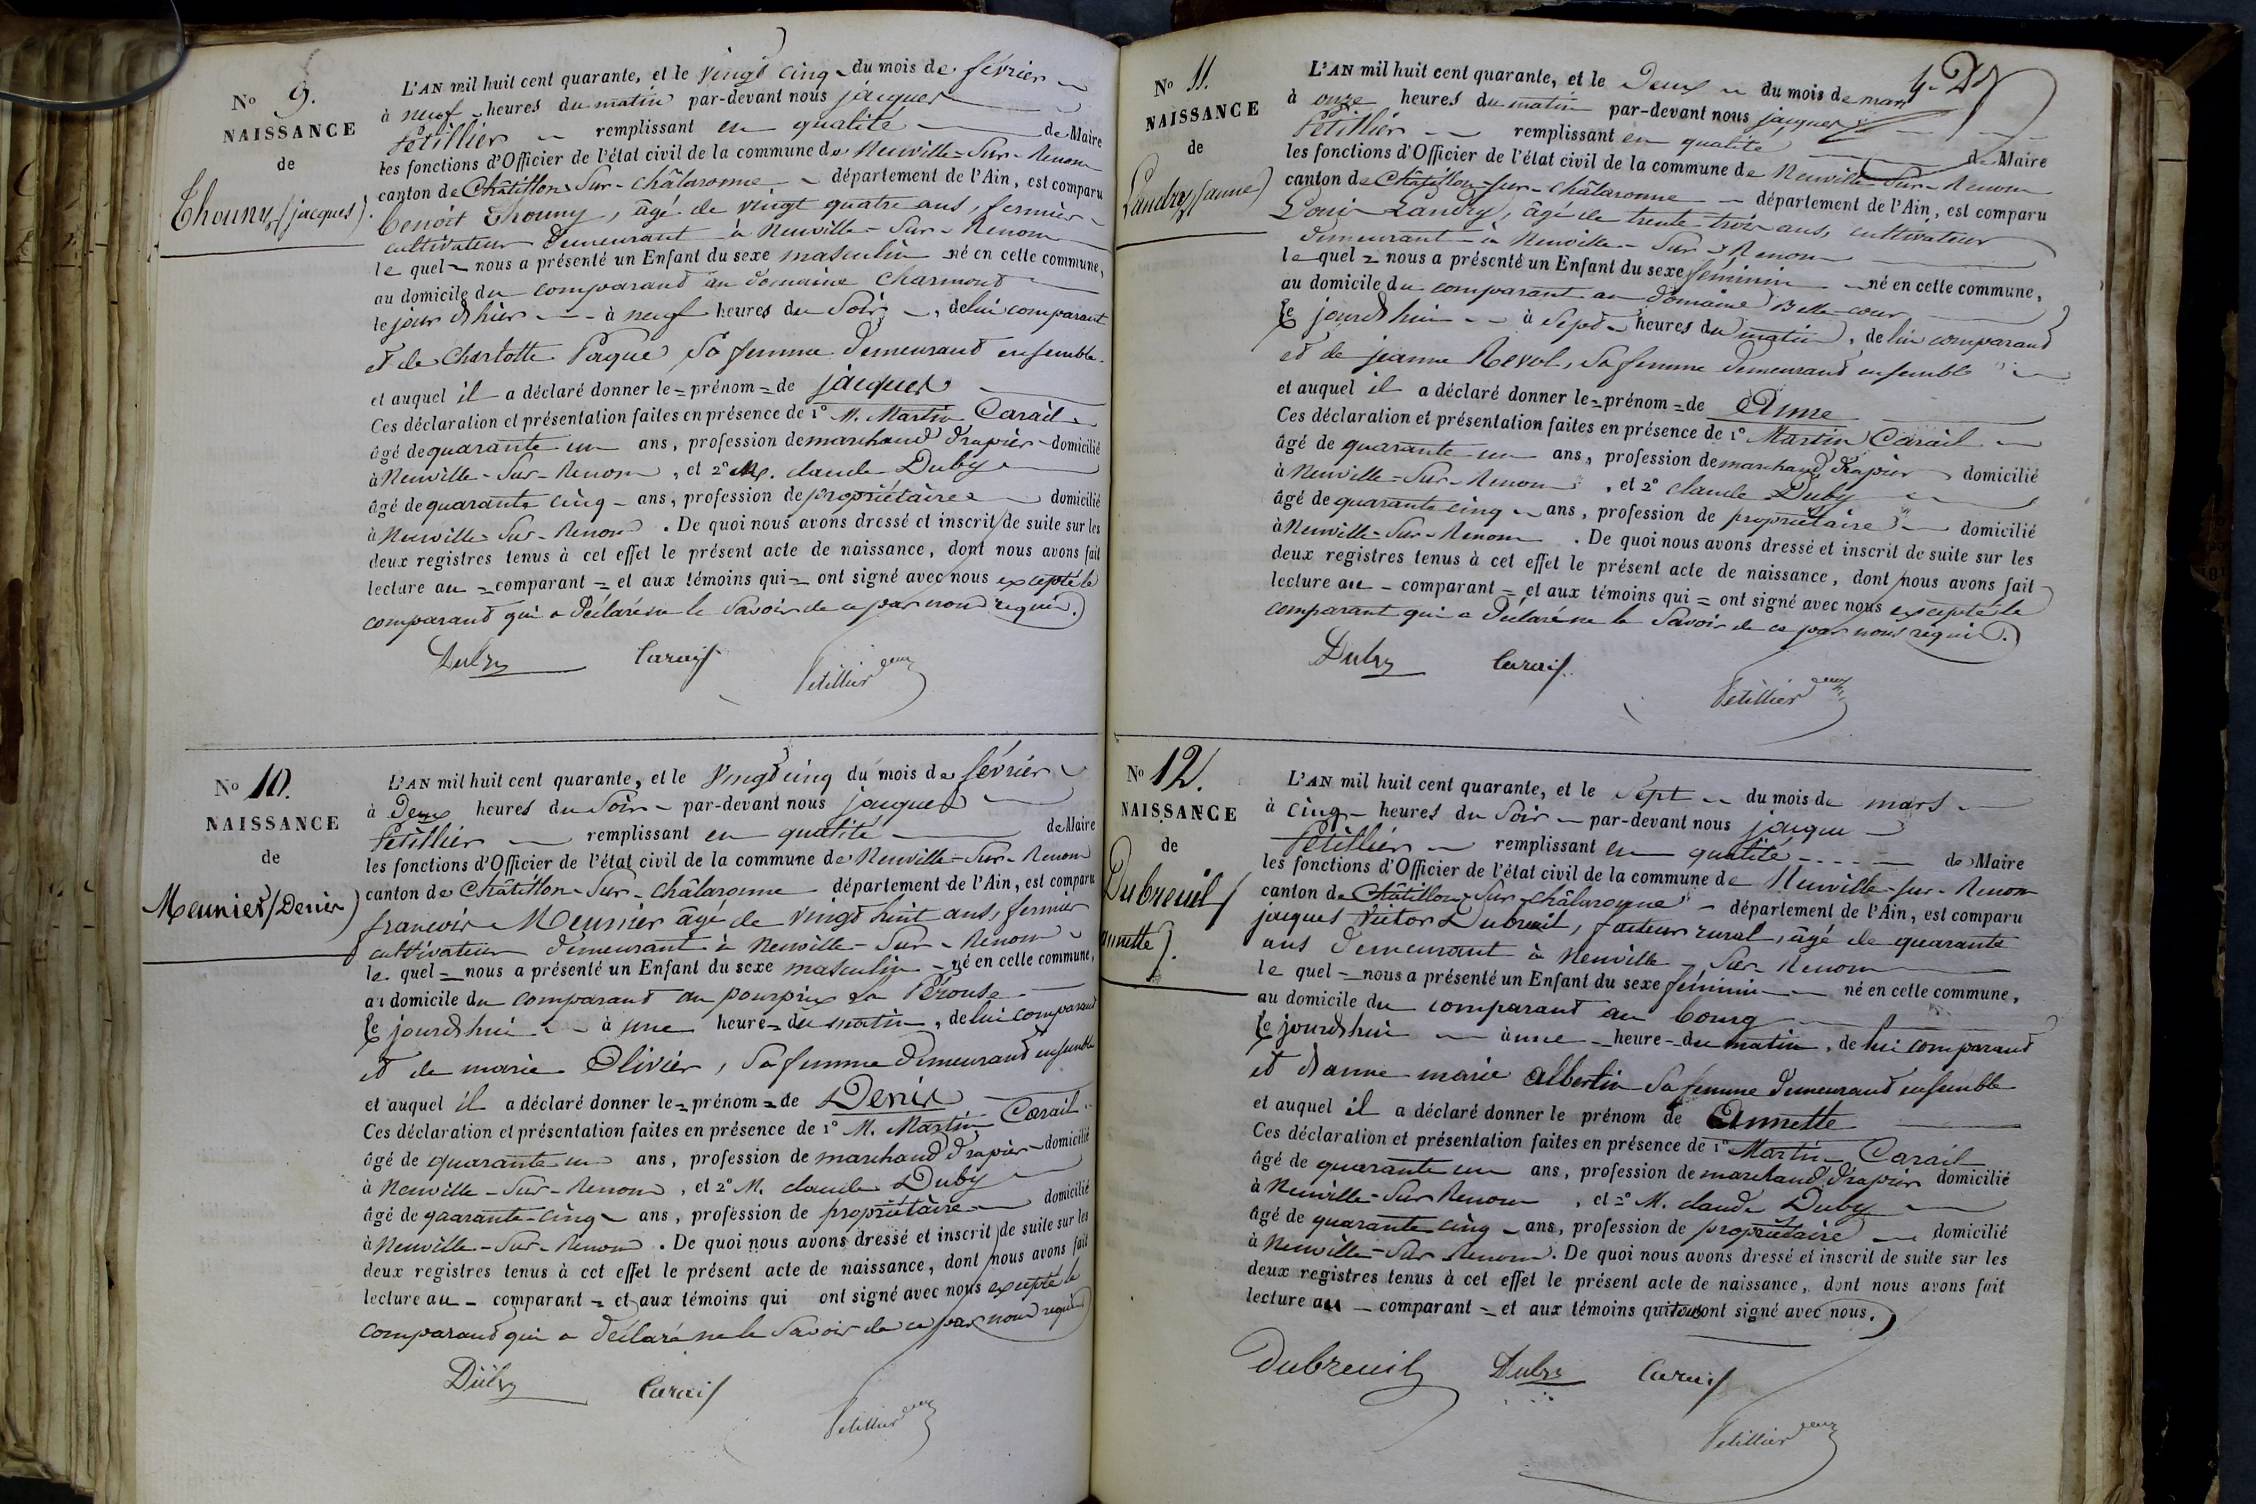 No 9.
NAISSANCE
de
Thouny (jacques)
L'AN mil huit cent quarante, et le vingt cinq du mois de février
à neuf heures du matin par-devant nous jacques
Petillier remplissant en qualité de Maire
les fonctions d'Officier de l'état civil de la commune de Neuville-Sur-Renom
canton de Châtillon Sur-Châlaronne département de l'Ain, est comparu
benoit Thouny, âgé de vingt quatre ans, fermier
cultivateur demeurant à Neuville-Sur-Renom
le quel nous a présenté un Enfant du sexe masculin né en cette commune,
au domicile du comparant au domaine Charmont
le jour d'hier à neuf heures du Soir, de lui comparant
et de Charlotte Paque sa femme demeurant ensemble
et auquel il a déclaré donner le prénom de jacques
Ces déclaration et présentation faites en présence de 1º M. Martin Carail
âgé de quarante un ans, profession de marchand drapier domicilié
à Neuville-Sur-Renom, et 2º M. claude Duby
âgé de quarante cinq ans, profession de propriétaire domicilié
à Neuville-Sur-Renom. De quoi nous avons dressé et inscrit de suite sur les
deux registres tenus à cet effet le présent acte de naissance, dont nous avons fait
lecture au comparant et aux témoins qui ont signé avec nous excepté le
comparant qui a déclaré ne le Savoir de ce par nous requis.
Duby Carail Petillier
No 10.
NAISSANCE
de
Meunier (Denis)
L'AN mil huit cent quarante, et le vingt cinq du mois de février
à Deux heures du Soir par-devant nous jacques
Petillier remplissant en qualité de Maire
les fonctions d'Officier de l'état civil de la commune de Neuville-Sur-Renom
canton de Châtillon-Sur-châlaronne département de l'Ain, est comparu
francois Meunier âgé de vingt huit ans, fermier
cultivateur demeurant à Neuville-Sur-Renom
le quel nous a présenté un Enfant du sexe masculin né en cette commune,
au domicile du comparant au pourpris La Pérouse
le jourd'hui à une heure du matin, de lui comparant
et de marie Olivier, sa femme demeurant ensemble
et auquel il a déclaré donner le prénom de Denis
Ces déclaration et présentation faites en présence de 1º M. Martin Carail
âgé de quarante un ans, profession de marchand drapier domicilié
à Neuville-Sur-Renom, et 2º M. claude Duby
âgé de quarante-cinq ans, profession de propriétaire domicilié
à Neuville-Sur-Renom. De quoi nous avons dressé et inscrit de suite sur les
deux registres tenus à cet effet le présent acte de naissance, dont nous avons fait
lecture au comparant et aux témoins qui ont signé avec nous excepté le
comparant qui a déclaré ne le Savoir de ce par nous requis
Duby Carail Petillier
No 11.
NAISSANCE
de
Landry (anne)
L'AN mil huit cent quarante, et le Deux du mois de mars
à onze heures du matin par-devant nous jacques
Petillier remplissant en qualité de Maire
les fonctions d'Officier de l'état civil de la commune de Neuville-Sur-Renom
canton de Châtillon-sur-châlaronne département de l'Ain, est comparu
Louis Landry, âgé de trente trois ans, cultivateur
demeurant à Neuville-Sur-Renom
le quel nous a présenté un Enfant du sexe féminin né en cette commune,
au domicile du comparant au domaine Belle-cour
le jourd'hui à Sept heures du matin, de lui comparant
et de jeanne Revol, sa femme demeurant ensemble
et auquel il a déclaré donner le prénom de Anne
Ces déclaration et présentation faites en présence de 1º Martin Carail
âgé de quarante un ans, profession de marchand drapier domicilié
à Neuville-Sur-Renom, et 2º claude Duby
âgé de quarante cinq ans, profession de propriétaire domicilié
à Neuville-Sur-Renom. De quoi nous avons dressé et inscrit de suite sur les
deux registres tenus à cet effet le présent acte de naissance, dont nous avons fait
lecture au comparant et aux témoins qui ont signé avec nous excepté le
comparant qui a déclaré ne le Savoir de ce par nous requis.
Duby Carail Petillier
No 12.
NAISSANCE
de
Dubreuil (
annette).
L'AN mil huit cent quarante, et le Sept du mois de mars
à cinq heures du Soir par-devant nous jacques
Petillier remplissant en qualité de Maire
les fonctions d'Officier de l'état civil de la commune de Neuville-sur-Renom
canton de Châtillon-Sur-châlaronne département de l'Ain, est comparu
jacques Victor Dubreuil, facteur rural, âgé de quarante
ans demeurant à Neuville-Sur-Renom
le quel nous a présenté un Enfant du sexe féminin né en cette commune,
au domicile du comparant au bourg
le jourd'hui à une heure du matin, de lui comparant
et d'anne marie Albertin sa femme demeurant ensemble
et auquel il a déclaré donner le prénom de Annette
Ces déclaration et présentation faites en présence de 1º Martin Carail
âgé de quarante un ans, profession de marchand drapier domicilié
à Neuville-Sur Renom, et 2º M. claude Duby
âgé de quarante cinq ans, profession de propriétaire domicilié
à Neuville-Sur Renom. De quoi nous avons dressé et inscrit de suite sur les
deux registres tenus à cet effet le présent acte de naissance, dont nous avons fait
lecture au comparant et aux témoins qui tous ont signé avec nous.
Dubreuil Duby Carail
Petillier